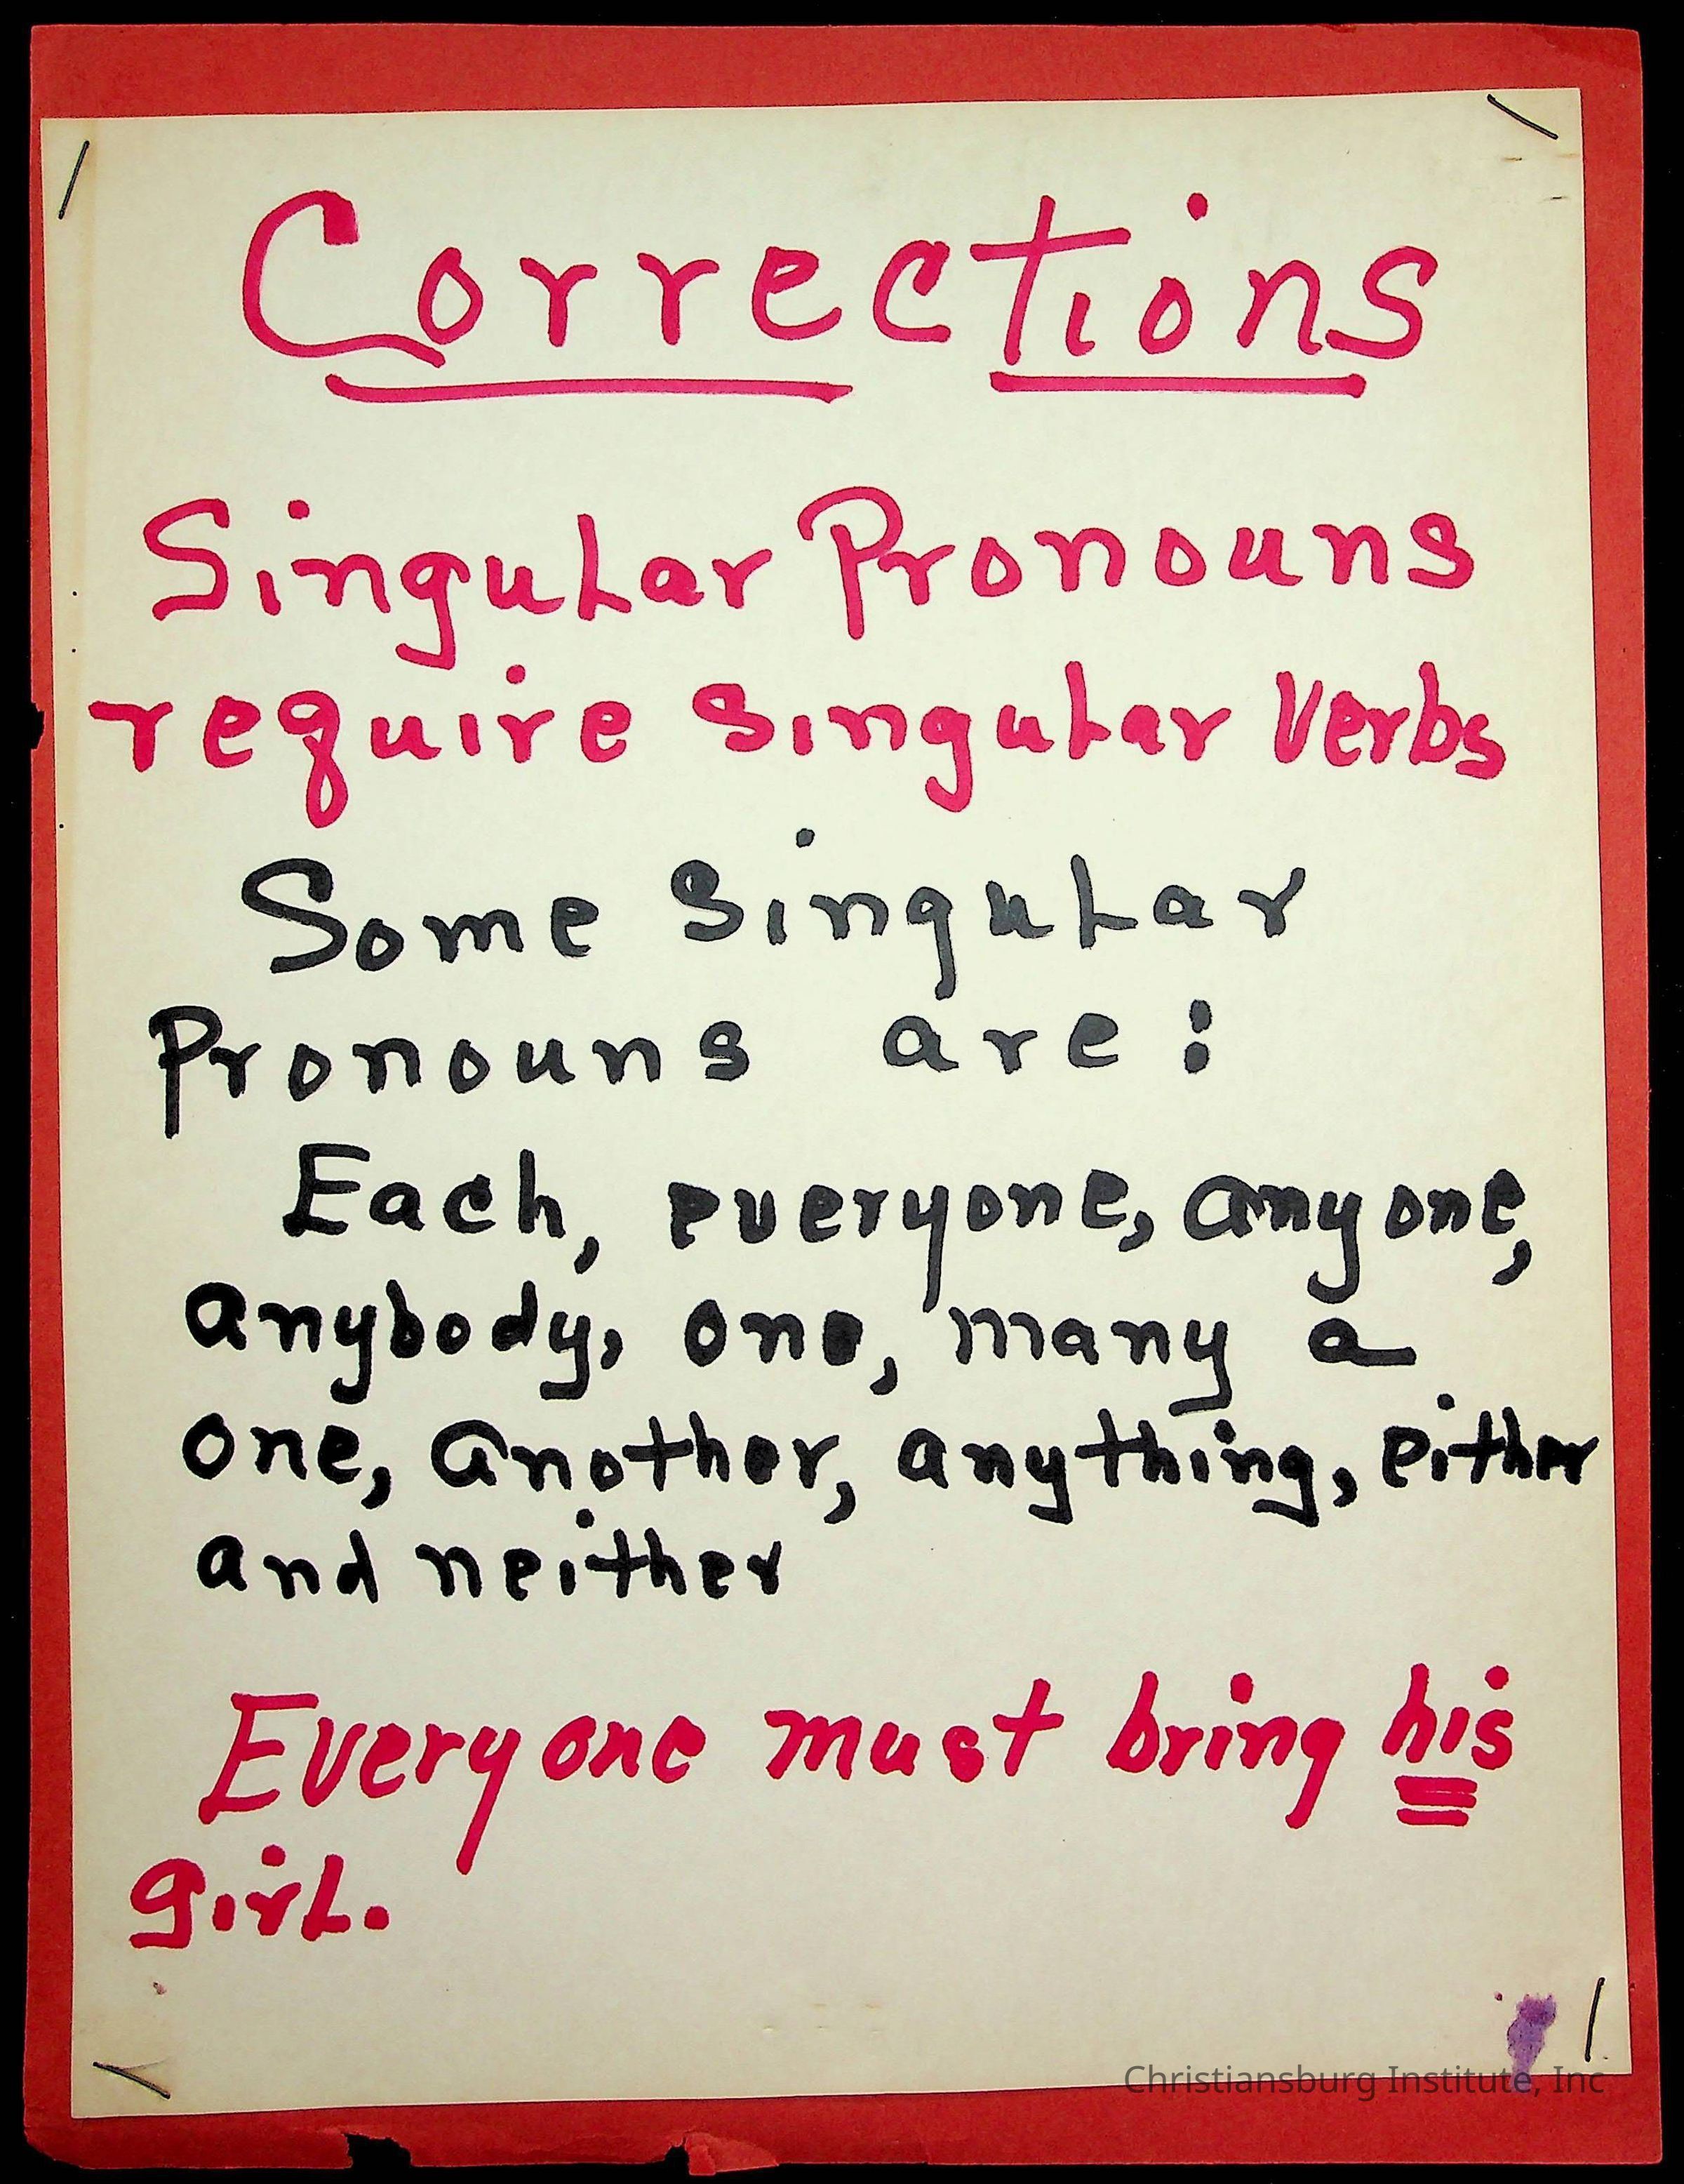 Corrections
Singular Pronouns
require singular verbs
Some singular
Pronouns are:
Each, everyone, anyone,
anybody, one, many a
one, another, anything, either
and neither
Everyone must bring his
girl.
Christiansburg Institute, Inc